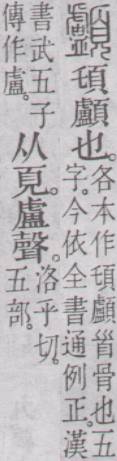 顱 𩑒顱也。
各本作𩑒顱𩠐骨也五
字。今依全書通例正。漢
書武五子
傳作盧。
从頁。盧聲。
洛乎切。
五部。